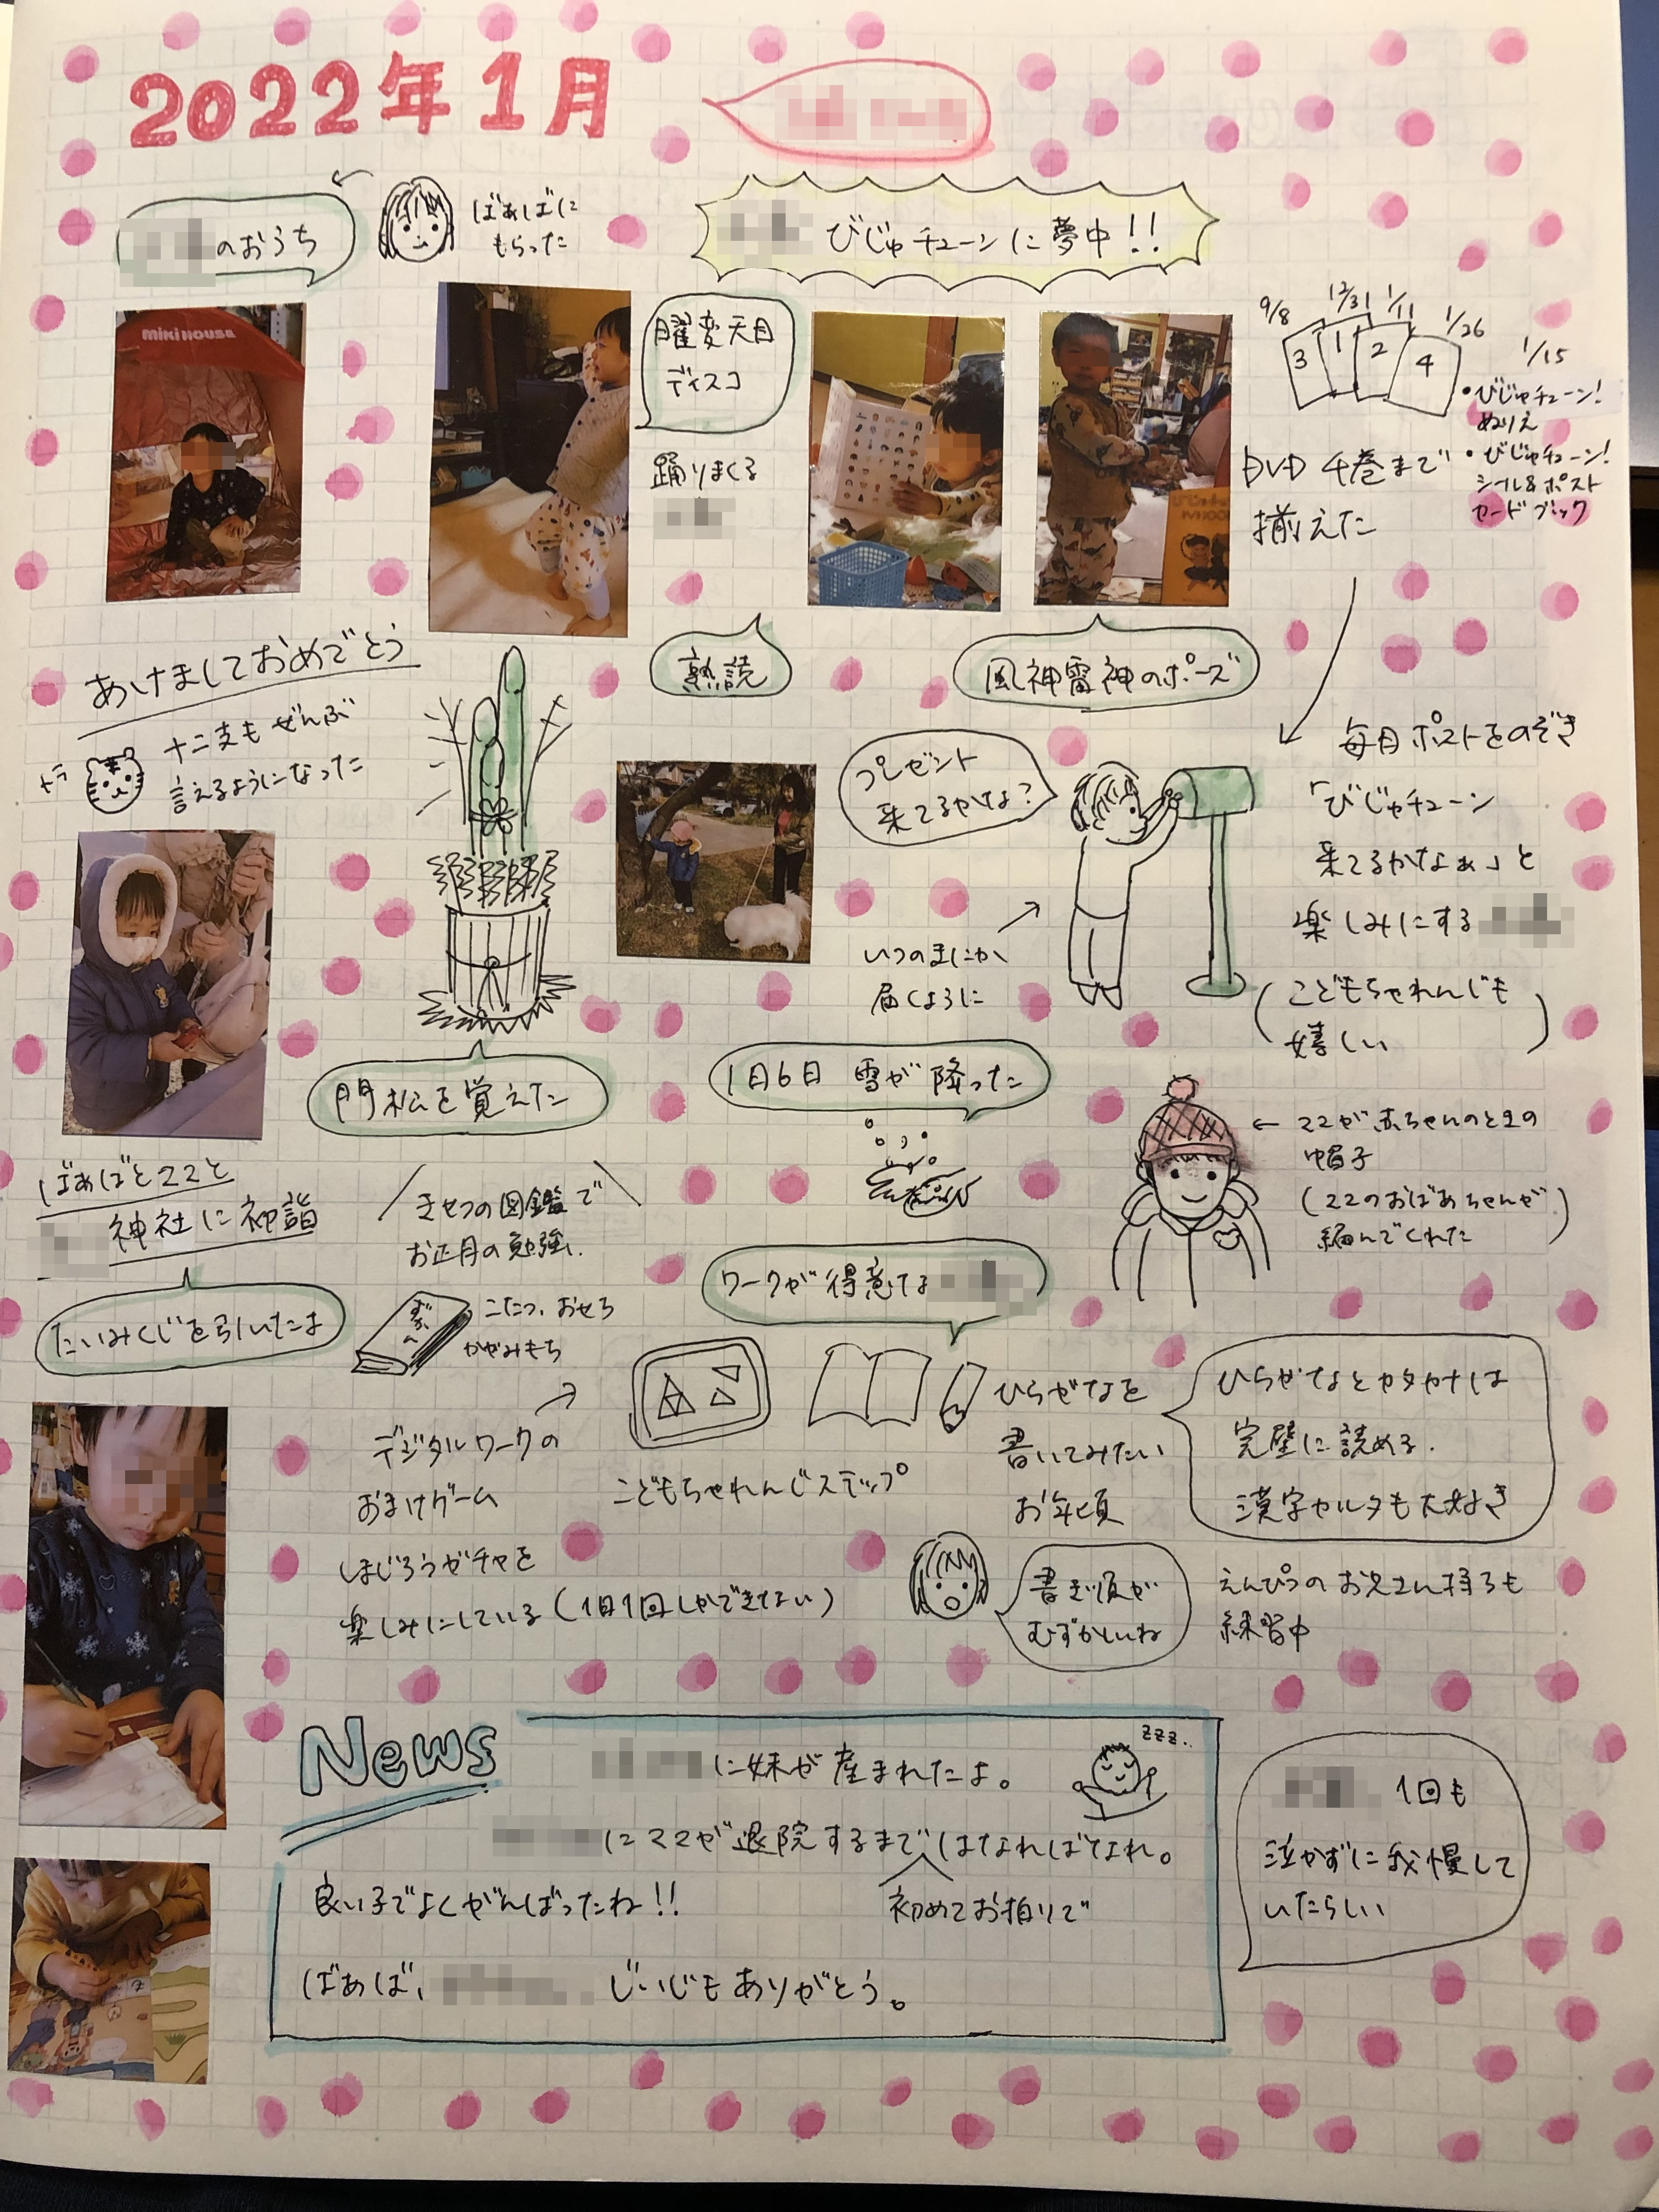 2022年1月
のおうち
ばあばに
もらった
びじゅチューンに夢中!!
miki HOUSE
曜変天目
ディスコ
踊りまくる
9/8 12/31 1/11 1/26
3 1 2 4
DVD 4巻まで
揃えた
1/15
・びじゅチューン!
ぬりえ
・びじゅチューン!
シール&ポスト
カードブック
熟読
風神雷神のポーズ
あけましておめでとう
トラ
十二支もぜんぶ
言えるようになった
プレゼント
来てるかな?
毎日ポストをのぞき
「びじゅチューン
来てるかなぁ」と
楽しみにする
(こどもちゃれんじも
嬉しい)
いつのまにか
届くように
門松を覚えた
1月6日 雪が降った
← ママが赤ちゃんのときの
帽子
(ママのおばあちゃんが
編んでくれた)
ばあばとママと
神社に初詣
たいみくじを引いたよ
きせつの図鑑で
お正月の勉強
ずかん
こたつ、おせち
かがみもち
ワークが得意な
デジタルワークの
おまけゲーム
こどもちゃれんじステップ
ひらがなを
書いてみたい
お年頃
ひらがなとカタカナは
完璧に読める.
漢字カルタも大好き
しまじろうガチャを
楽しみにしている(1日1回しかできない)
書き順が
むずかしいね
えんぴつのお兄さん持ちも
練習中
News
に妹が産まれたよ。
zzz..
にママが退院するまではなればなれ。
初めてお泊りで
良い子でよくがんばったね!!
ばあば、
じいじもありがとう。
1回も
泣かずに我慢して
いたらしい